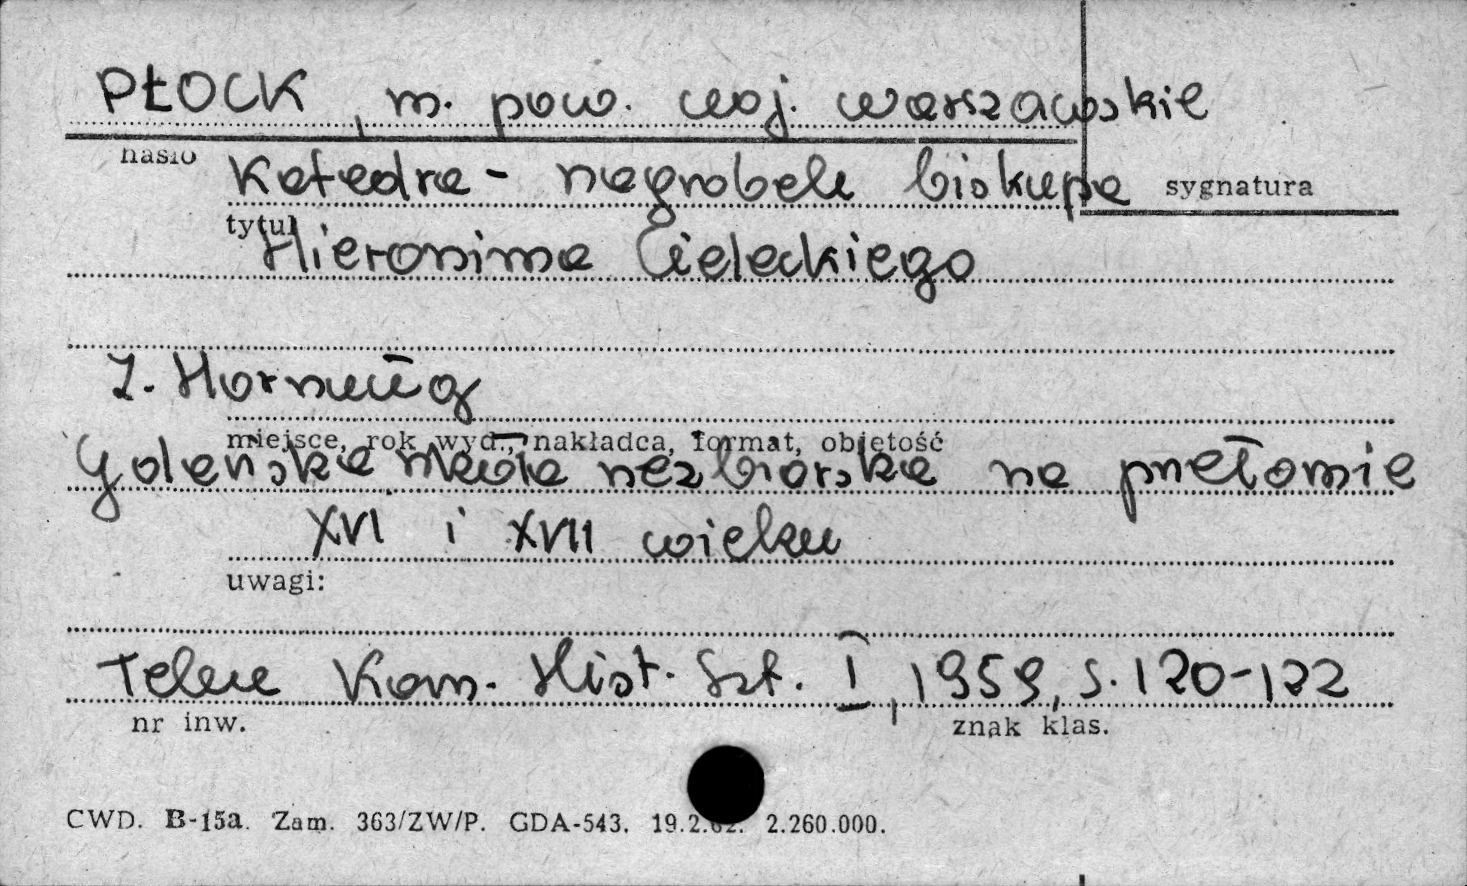 PŁOCK, m. pow. woj. warszawskie
hasło
Katedra - nagrobek biskupa sygnatura
tytuł
Hieronima Cieleckiego
Z. Hornung
miejsce, rok wyd., nakładca, format, objętość
Gdańska szkoła rzeźbiarska na przełomie
XVI i XVII wieku
uwagi:
Teka Kom. Hist. Szt. I, 1959, s. 120-122
nr inw. znak klas.
CWD. B-15a. Zam. 363/ZW/P. GDA-543. 19.2.62. 2.260.000.